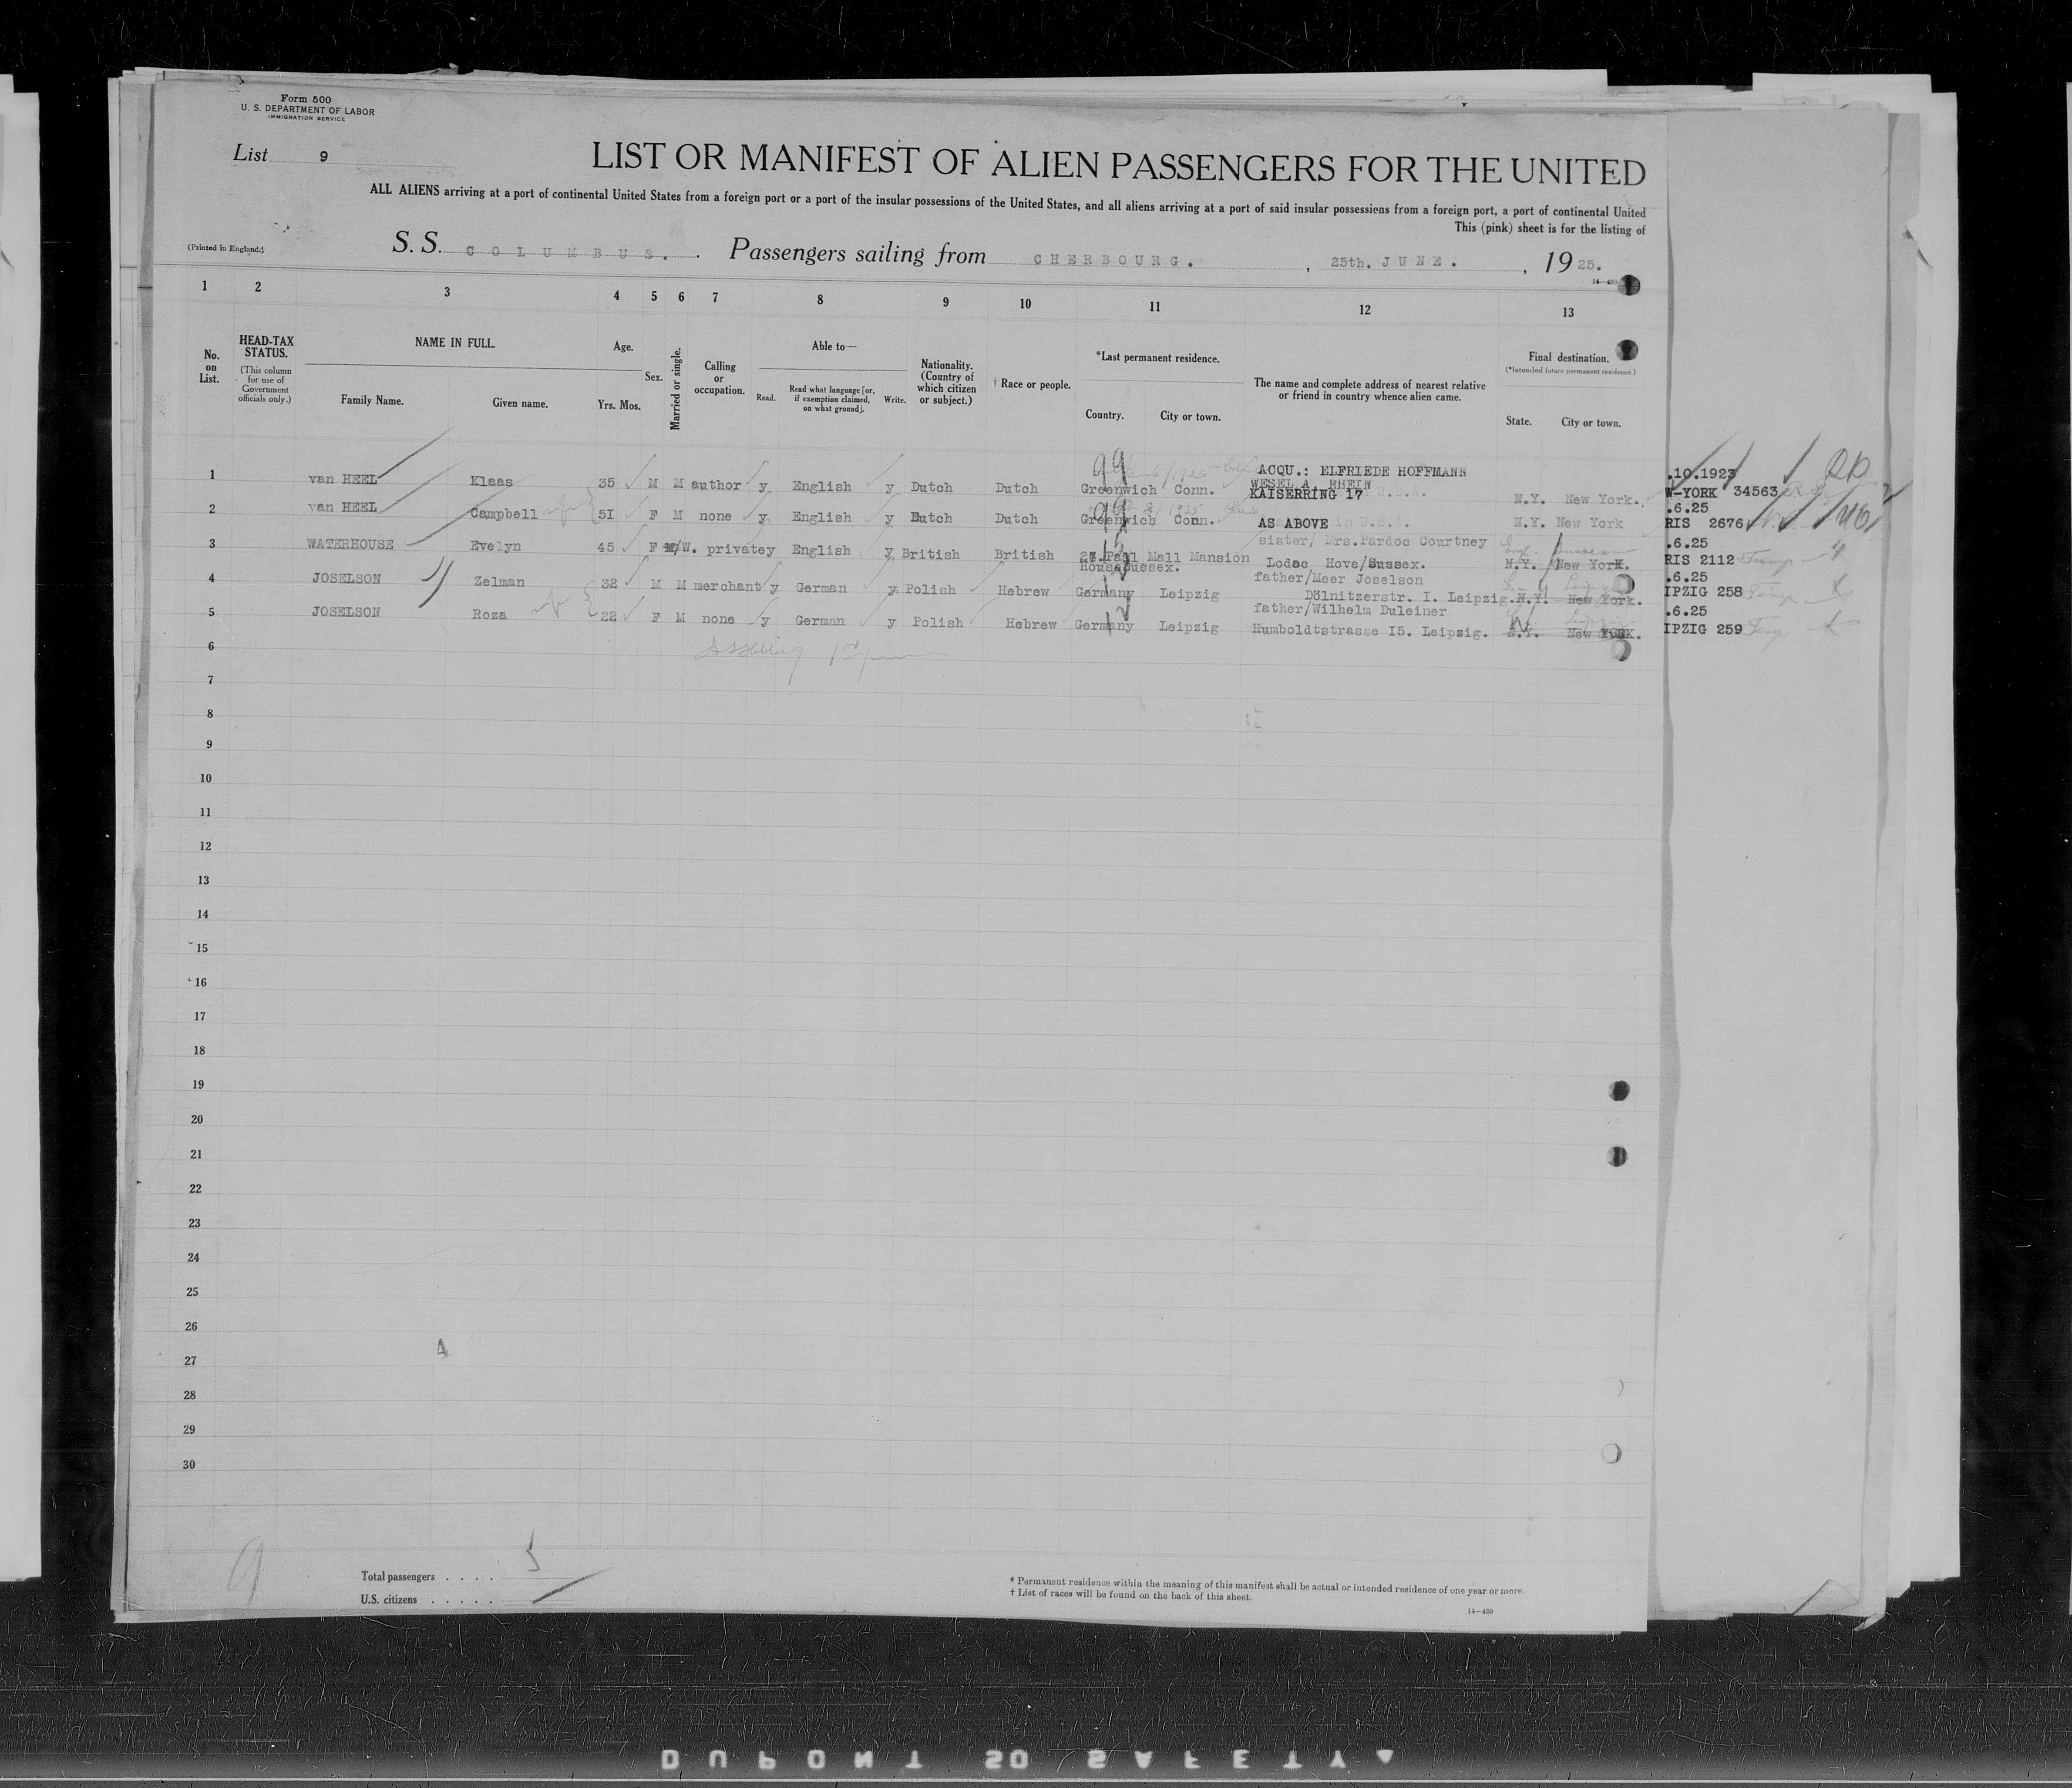 Form 500
U. S. DEPARTMENT OF LABOR
IMMIGRATION SERVICE
List 9
LIST OR MANIFEST OF ALIEN PASSENGERS FOR THE UNITED
ALL ALIENS arriving at a port of continental United States from a foreign port or a port of the insular possessions of the United States, and all aliens arriving at a port of said insular possessions from a foreign port, a port of continental United
This (pink) sheet is for the listing of
(Printed in England.)
S. S. COLUMBUS. Passengers sailing from CHERBOURG. , 25th. JUNE. , 1925.
1 2 3 4 5 6 7 8 9 10 11 12 13
No. on List.
HEAD-TAX STATUS.
(This column for use of Government officials only.)
NAME IN FULL.
Family Name. Given name.
Age.
Yrs. Mos.
Sex.
Married or single.
Calling or occupation.
Able to—
Read. Read what language [or, if exemption claimed, on what ground]. Write.
Nationality. (Country of which citizen or subject.)
† Race or people.
*Last permanent residence.
Country. City or town.
The name and complete address of nearest relative or friend in country whence alien came.
Final destination.
(*Intended future permanent residence.)
State. City or town.
1 van HEEL Klaas 35 M M author y English y Dutch Dutch Greenwich Conn. ACQU.: ELFRIEDE HOFFMANN
WESEL A. RHEIN
KAISERRING 17 U.S.A. N.Y. New York.
.10.1923
W-YORK 34563
2 van HEEL Campbell 51 F M none y English y Dutch Dutch Greenwich Conn. AS ABOVE in U.S.A. N.Y. New York
.6.25
RIS 2676
3 WATERHOUSE Evelyn 45 F M/W. private y English y British British Pall Mall Mansion
sister/ Mrs.Pardoc Courtney
Lodac Hove/Sussex. N.Y. New York.
.6.25
RIS 2112
4 JOSELSON Zelman 32 M M merchant y German y Polish Hebrew Germany Leipzig
father/Meer Joselson
Dölnitzerstr. I. Leipzig. N.Y. New York.
.6.25
IPZIG 258
5 JOSELSON Roza 22 F M none y German y Polish Hebrew Germany Leipzig
father/Wilhelm Duleiner
Humboldtstrasse I5. Leipzig. N.Y. New YORK.
.6.25
IPZIG 259
6
7
8
9
10
11
12
13
14
15
16
17
18
19
20
21
22
23
24
25
26
27
28
29
30
9
Total passengers . . . . 5
U.S. citizens . . . . .
* Permanent residence within the meaning of this manifest shall be actual or intended residence of one year or more.
† List of races will be found on the back of this sheet.
14—430
DUPONT 50 SAFETY